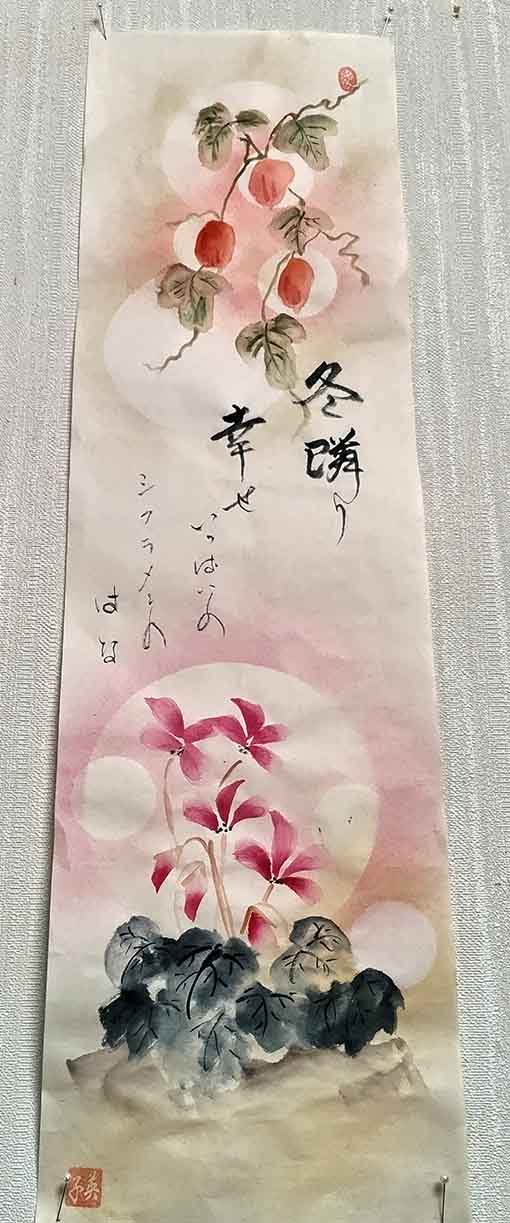 冬隣り
幸せいっぱいの
シクラメンの
はな
英子